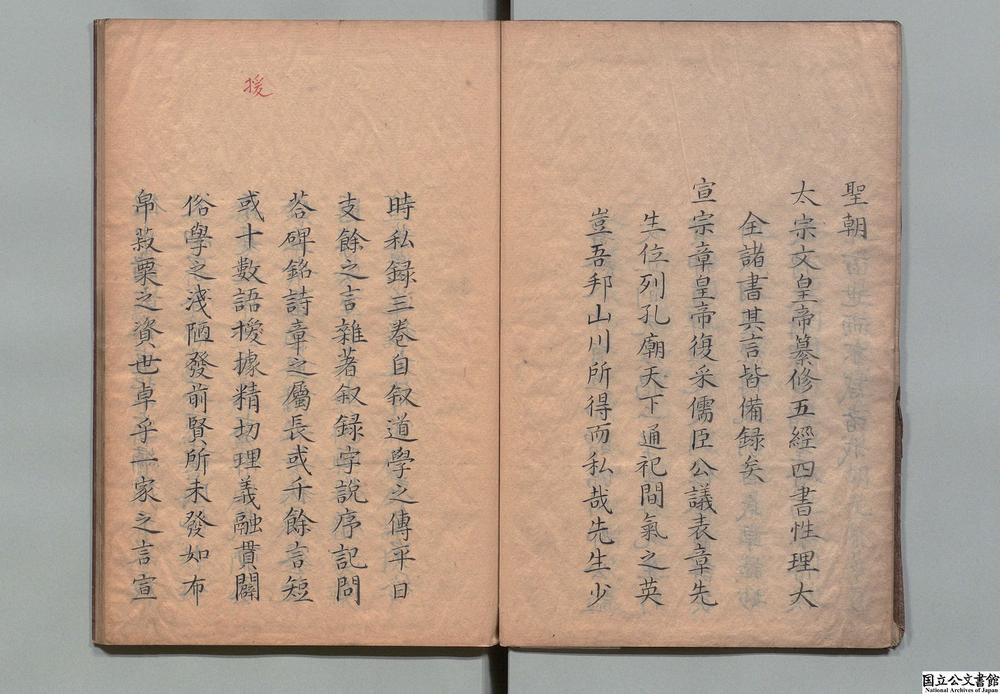 聖朝
太宗文皇帝纂修五經四書性理大
全諸書其言皆備録矣
宣宗章皇帝復采儒臣公議表章先
生位列孔廟天下通祀間氣之英
豈吾邦山川所得而私哉先生少
時私録三卷自叙道學之傳平日
支餘之言雜著叙録字說序記問
荅碑銘詩章之屬長或千餘言短
或十數語撥據精切理義融貫闢
俗學之淺陋發前賢所未發如布
帛菽粟之資世卓乎一家之言宣
援
国立公文書館
National Archives of Japan